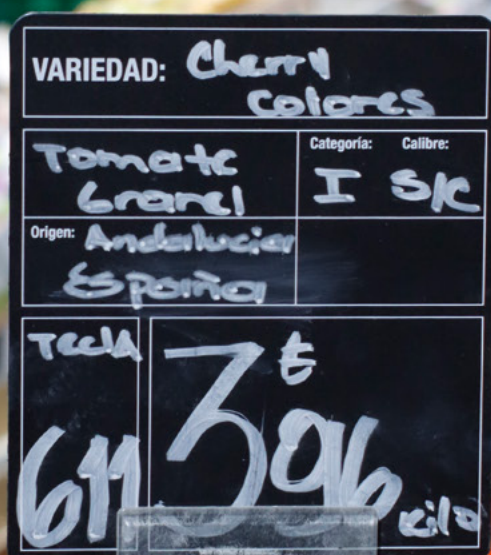 VARIEDAD: Cherry
Colores
Tomate
Granel
Categoría: Calibre:
I S/C
Origen: Andalucia
España
Tecla
611
3€96 kilo